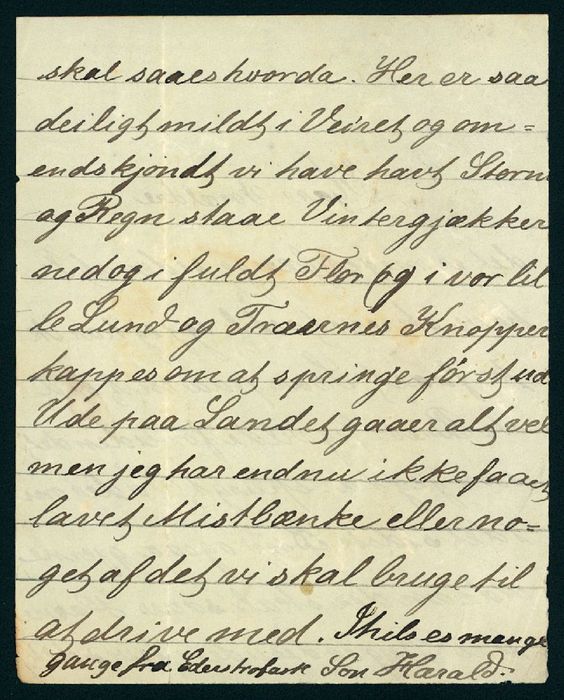 skal saaes hvorda. Her er saa
deiligt mildt i Veiret og om=
endskjøndt vi have havt Storm
og Regn staae Vintergjækker
ned og i fuldt Flor (og i vor lil
le Lund og Træernes Knopper
kappes om at springe først ud
Ude paa Landet gaaer alt vel
men jeg har endnu ikke faaet
lavet Mistbænke eller no=
get af det vi skal bruge til
at drive med. I hilses mange
gange fra Eders Søn Harald.